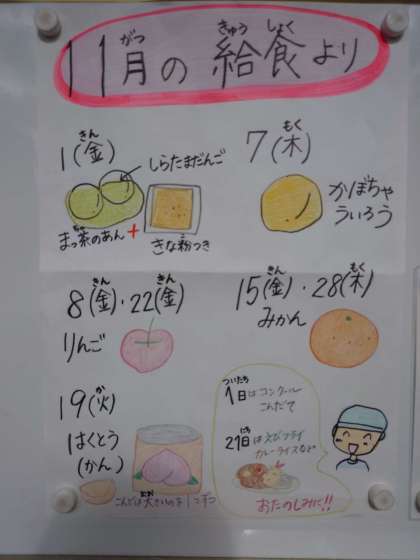 11月の給食より
がつ きゅう しょく
1(金)
きん
しらたまだんご
まっ茶のあん+
ちゃ
きな粉つき
こ
7(木)
もく
かぼちゃ
ういろう
8(金)・22(金)
きん きん
りんご
15(金)・28(木)
きん もく
みかん
19(火)
か
はくとう
(かん)
1日はコンクール
ついたち
こんだて
21日はえびフライ
にち
カレーライスなど
おたのしみに!!